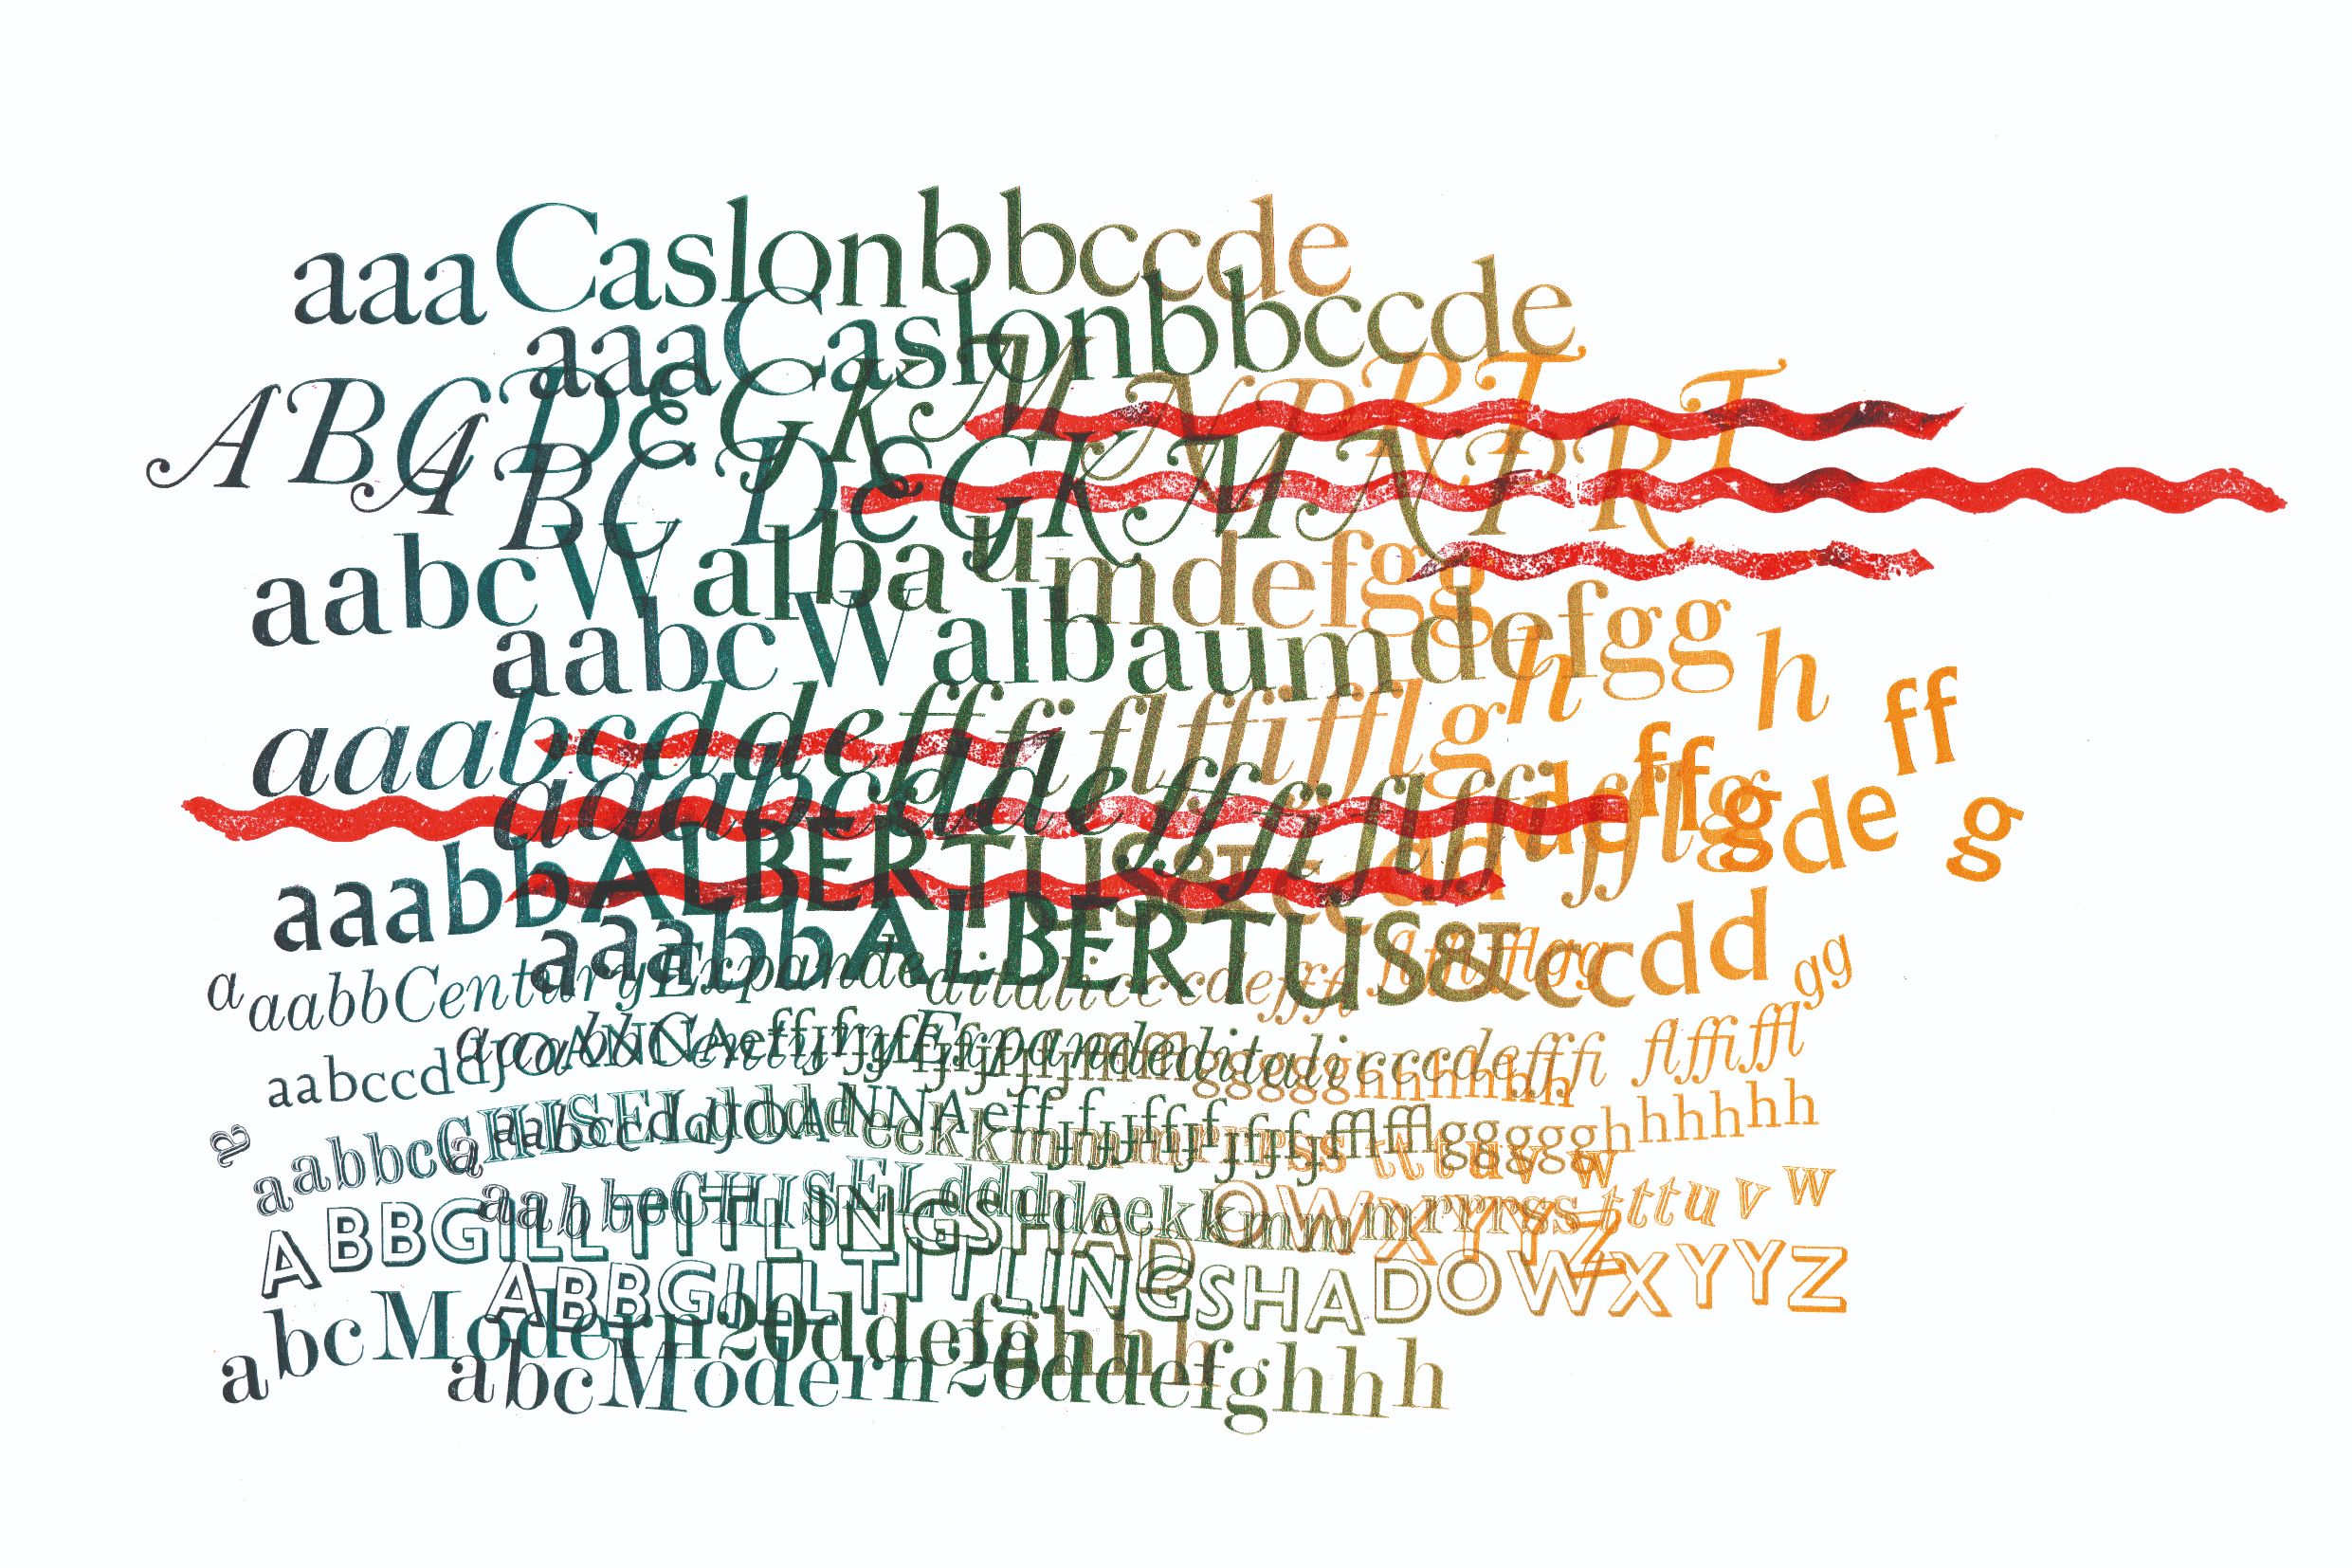 aaaCaslonbbccde
aaaCaslonbbccde
ABCDEGKMNPRT
ABCDEGKMNPRT
aabcWalbaumdefgg
aabcWalbaumdefgg
aaabcddefffiflffifflgh
aaabcddefffiflffifflgh
aaabbALBERTUS&ccdddeffg
aaabbALBERTUS&ccdddeffg
aaabbCenturyExpandeditaliccccdefffiflffifflgg
aabbCenturyExpandeditaliccccdefffiflffifflgg
aabccddJOANNA
JOANNA
aabbcCHISELddddeekkmmmrrrssstttuvw
aabbcCHISELddddeekkmmmrrrssstttuvw
ABBGILLTITLINGSHADOWXYYZ
ABBGILLTITLINGSHADOWXYYZ
abcModern20ddefghhh
abcModern20ddefghhh